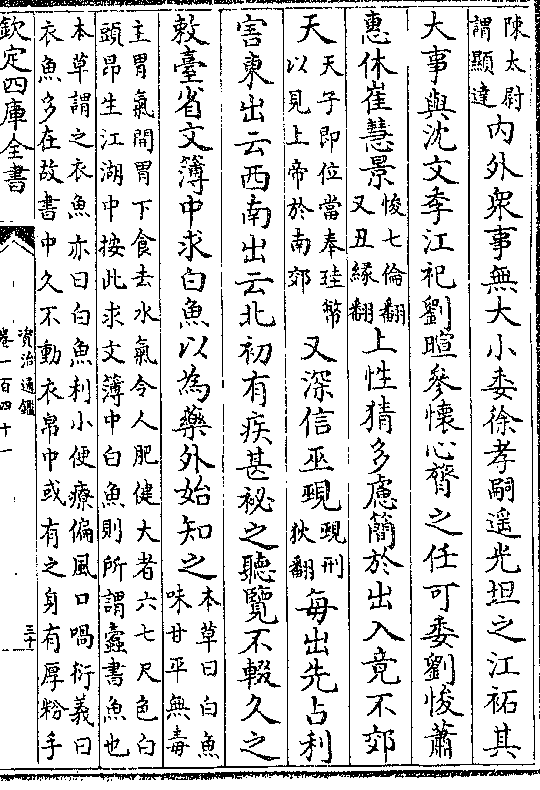 陳太尉
謂顯達
内外衆事無大小委徐孝嗣遥光坦之江祏其
大事與沈文季江祀劉暄參懷心膂之任可委劉悛蕭
惠休崔慧景
悛七倫翻
又丑緣翻
上性猜多慮簡於出入竟不郊
天
天子即位當奉珪幣
以見上帝於南郊
又深信巫覡
覡刑
狄翻
每出先占利
害東出云西南出云北初有疾甚祕之聽覽不輟久之
敕臺省文簿中求白魚以為藥外始知之
本草曰白魚
味甘平無毒
主胃氣開胃下食去水氣令人肥健大者六七尺色白
頭昂生江湖中按此求文簿中白魚則所謂蠧書魚也
本草謂之衣魚亦曰白魚利小便療偏風口喎衍義曰
衣魚多在故書中久不動衣帛中或有之身有厚粉手
欽定四庫全書
資治通鑑
卷一百四十一
三十